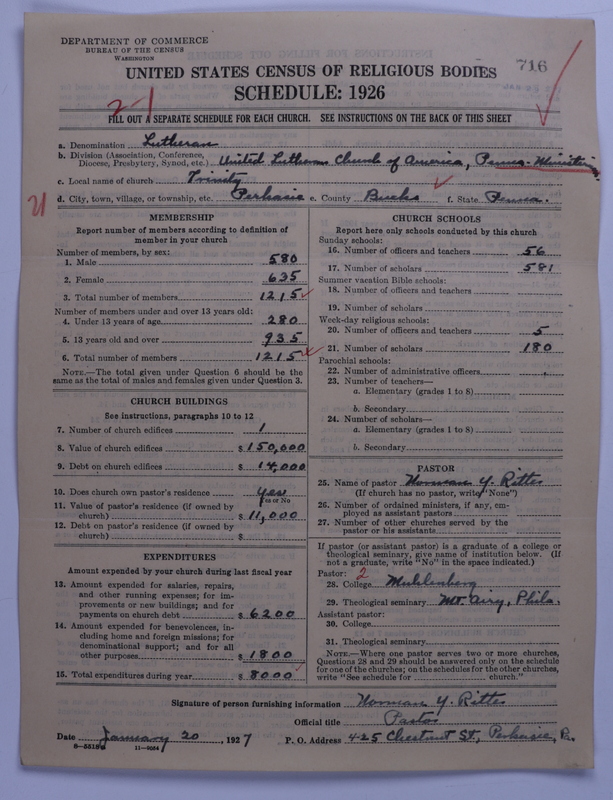 DEPARTMENT OF COMMERCE
BUREAU OF THE CENSUS
WASHINGTON
716
UNITED STATES CENSUS OF RELIGIOUS BODIES
SCHEDULE: 1926
2-1
FILL OUT A SEPARATE SCHEDULE FOR EACH CHURCH. SEE INSTRUCTIONS ON THE BACK OF THIS SHEET
a. Denomination Lutheran
b. Division (Association, Conference, Diocese, Presbytery, Synod, etc.) United Lutheran Church of America, Penna-Ministerium
c. Local name of church Trinity
d. City, town, village, or township, etc. Perkasie e. County Bucks f. State Penna.
21
MEMBERSHIP
Report number of members according to definition of
member in your church
Number of members, by sex:
1. Male 580
2. Female 635
3. Total number of members 1215
Number of members under and over 13 years old:
4. Under 13 years of age 280
5. 13 years old and over 935
6. Total number of members 1215
NOTE.—The total given under Question 6 should be
same as the total of males and females given under Question 3.
CHURCH BUILDINGS
See instructions, paragraphs 10 to 12
7. Number of church edifices 1
8. Value of church edifices $150,000
9. Debt on church edifices $14,000
10. Does church own pastor's residence yes
Yes or No
11. Value of pastor's residence (if owned by
church) $11,000
12. Debt on pastor's residence (if owned by
church) $
EXPENDITURES
Amount expended by your church during last fiscal year
13. Amount expended for salaries, repairs,
and other running expenses; for im-
provements or new buildings; and for
payments on church debt $6200
14. Amount expended for benevolences, in-
cluding home and foreign missions; for
denominational support; and for all
other purposes $1800
15. Total expenditures during year $8000
CHURCH SCHOOLS
Report here only schools conducted by this church
Sunday schools:
16. Number of officers and teachers 56
17. Number of scholars 581
Summer vacation Bible schools:
18. Number of officers and teachers
19. Number of scholars
Week-day religious schools:
20. Number of officers and teachers 5
21. Number of scholars 180
Parochial schools:
22. Number of administrative officers
23. Number of teachers—
a. Elementary (grades 1 to 8)
b. Secondary
24. Number of scholars—
a. Elementary (grades 1 to 8)
b. Secondary
PASTOR
25. Name of pastor Norman Y. Ritter
(If church has no pastor, write "None")
26. Number of ordained ministers, if any, em-
ployed as assistant pastors
27. Number of other churches served by the
pastor or his assistants
If pastor (or assistant pastor) is a graduate of a college or
theological seminary, give name of institution below. (If
not a graduate, write "No" in the space indicated.)
Pastor: 2
28. College Muhlenberg
29. Theological seminary Mt. Airy, Phila.
Assistant pastor:
30. College
31. Theological seminary
NOTE.—Where one pastor serves two or more churches,
Questions 28 and 29 should be answered only on the schedule
for one of the churches; on the schedules for the other churches,
write "See schedule for church."
Signature of person furnishing information Norman Y. Ritter
Official title Pastor
Date January 20, 1927 P. O. Address 425 Chestnut St., Perkasie, Pa.
11—9064